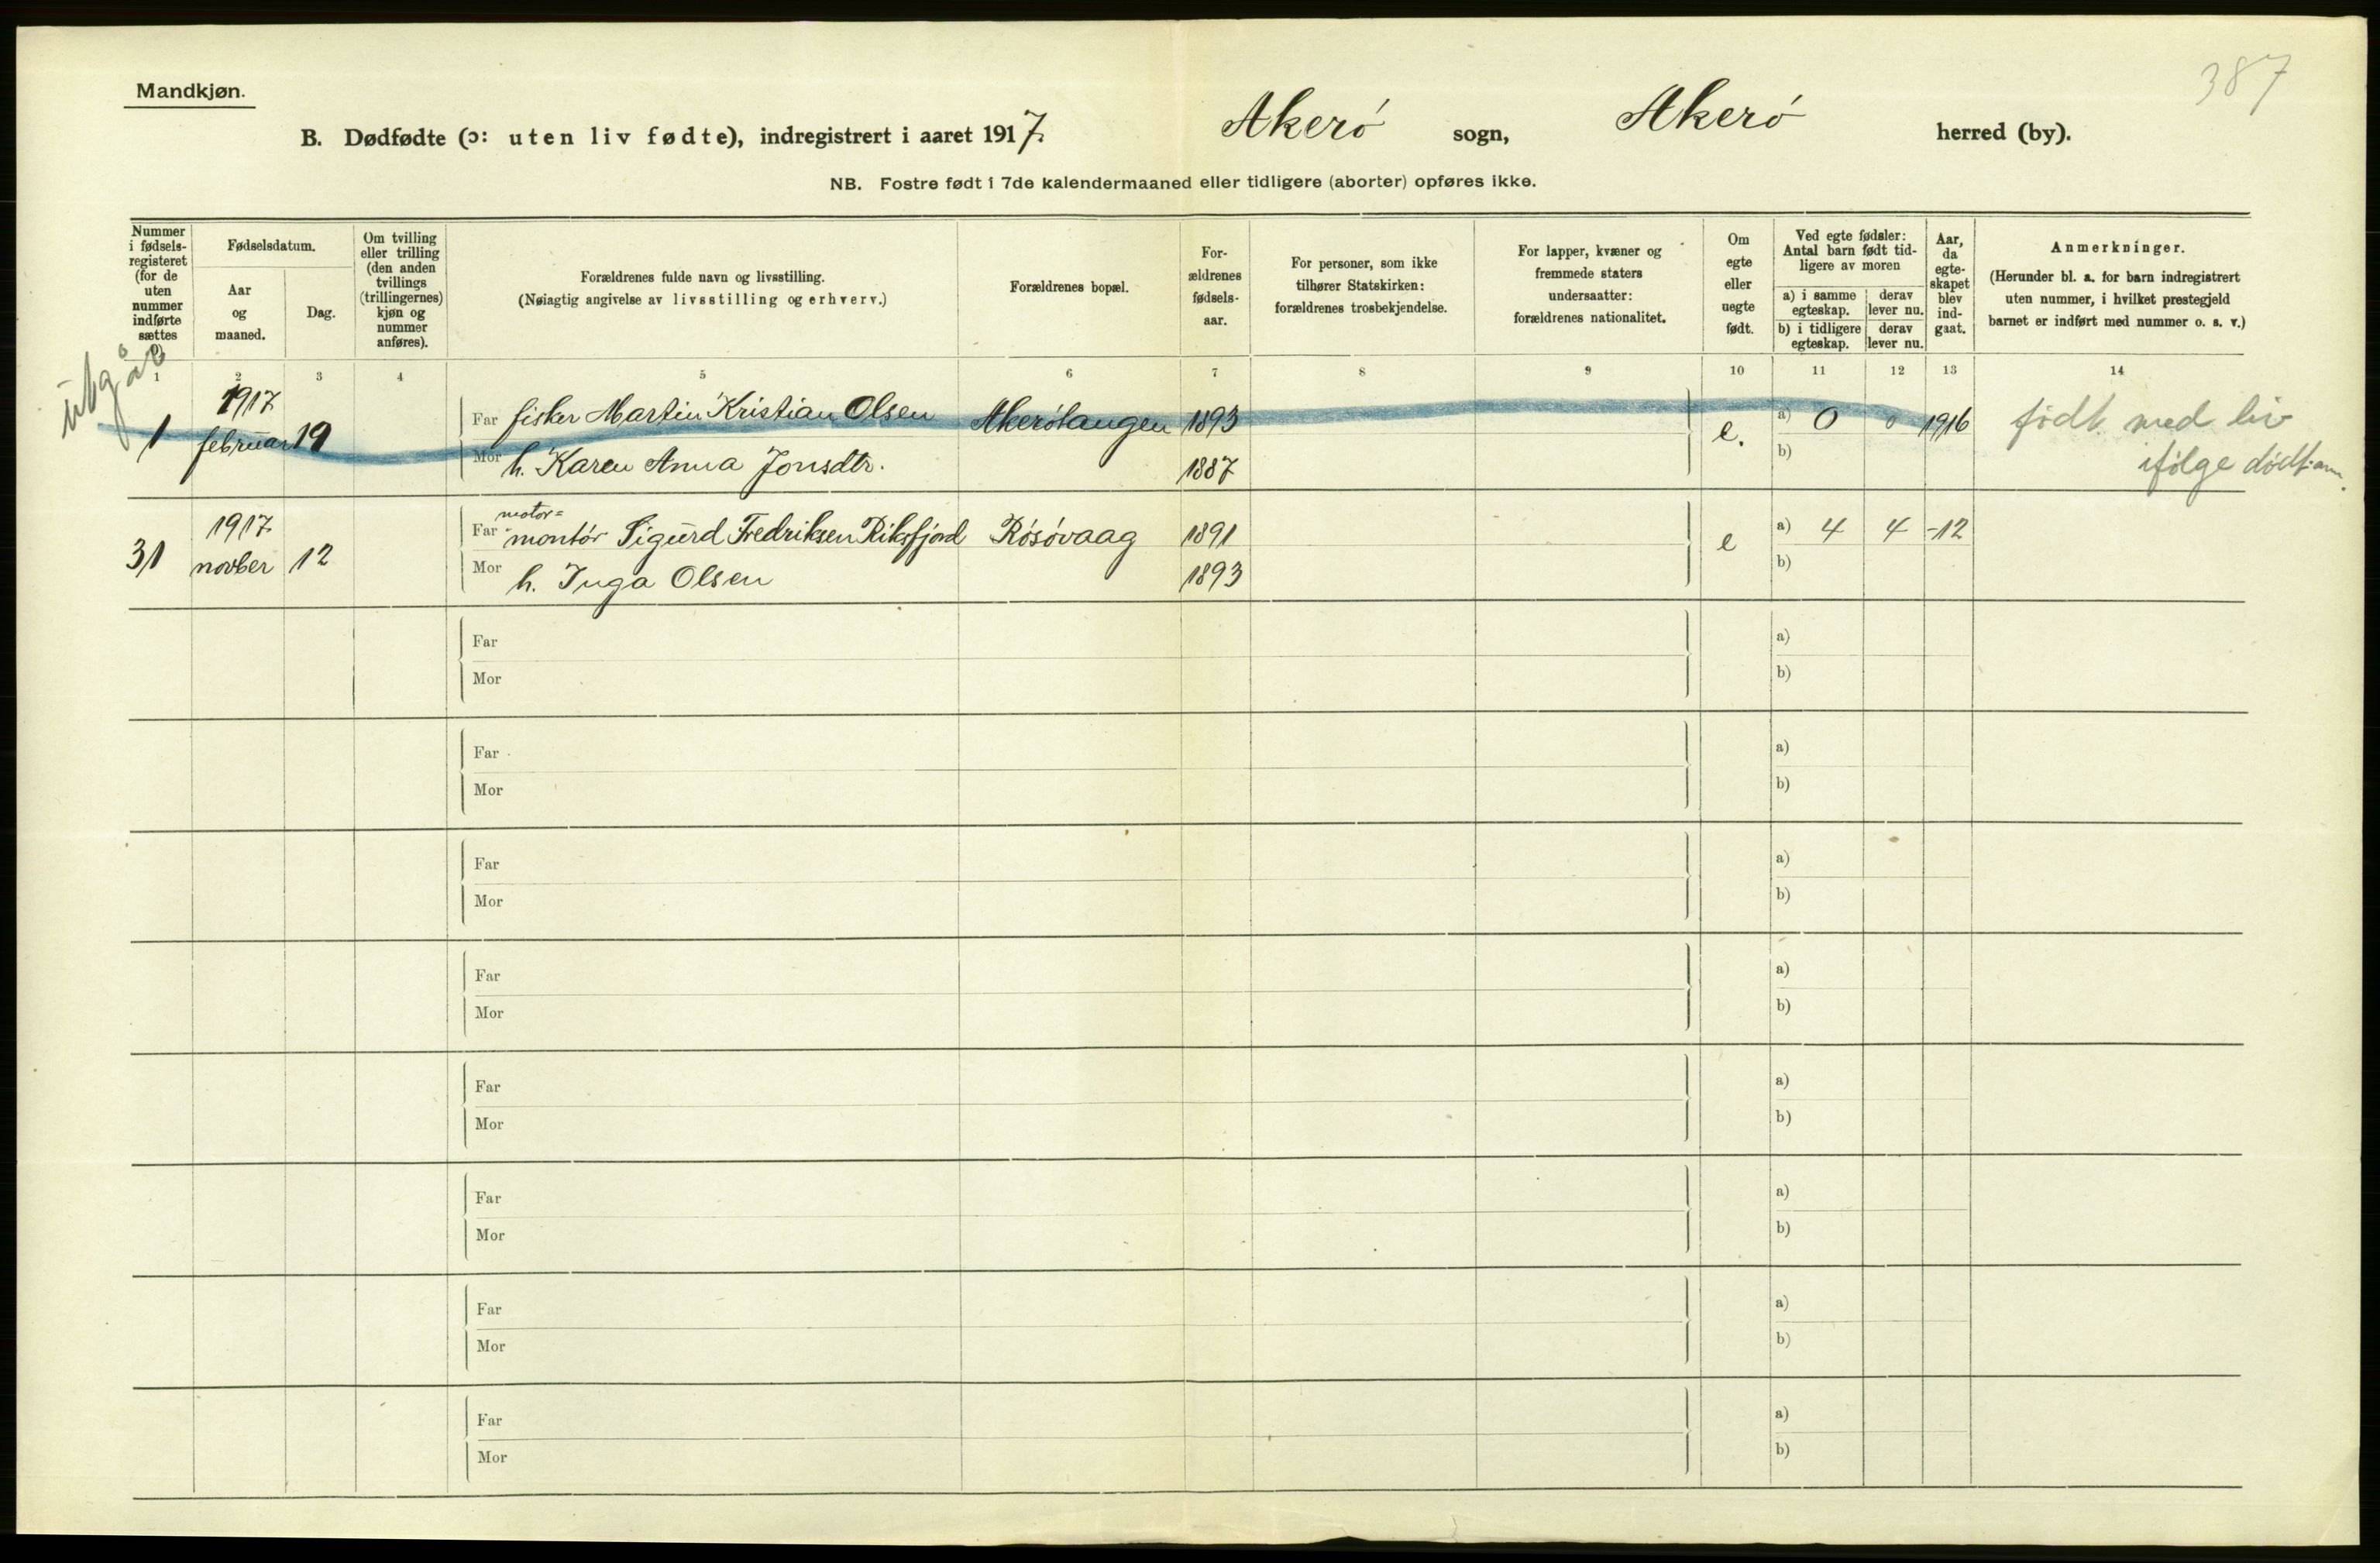 387
Mandkjøn.
B. Dødfødte (ɔ: uten liv fødte), indregistrert i aaret 1917. Akerø sogn, Akerø herred (by).
NB. Fostre født i 7de kalendermaaned eller tidligere (aborter) opføres ikke.
Nummer i fødsels-registeret (for de uten nummer indførte sættes 0)
Fødselsdatum.
Aar og maaned.
Dag.
Om tvilling eller trilling (den anden tvillings (trillingernes) kjøn og nummer anføres).
Forældrenes fulde navn og livsstilling.
(Nøiagtig angivelse av livsstilling og erhverv.)
Forældrenes bopæl.
For-ældrenes fødsels-aar.
For personer, som ikke tilhører Statskirken: forældrenes trosbekjendelse.
For lapper, kvæner og fremmede staters undersaatter: forældrenes nationalitet.
Om egte eller uegte født.
Ved egte fødsler: Antal barn født tid-ligere av moren
a) i samme egteskap. derav lever nu.
b) i tidligere egteskap. derav lever nu.
Aar, da egte-skapet blev ind-gaat.
Anmerkninger.
(Herunder bl. a. for barn indregistrert uten nummer, i hvilket prestegjeld barnet er indført med nummer o. s. v.)
1 2 3 4 5 6 7 8 9 10 11 12 13 14
utgår
1 1917 februar 19 Far fisker Martin Kristian Olsen Akerøtangen 1893 e. a) 0 0 1916 født med liv
Mor h. Karen Anna Jonsdtr. 1887 b) ifølge dødf.anm.
31 1917 novber 12 Far motor=montør Sigurd Fredriksen Riksfjord Røsøvaag 1891 e a) 4 4 -12
Mor h. Inga Olsen 1893 b)
Far a)
Mor b)
Far a)
Mor b)
Far a)
Mor b)
Far a)
Mor b)
Far a)
Mor b)
Far a)
Mor b)
Far a)
Mor b)
Far a)
Mor b)